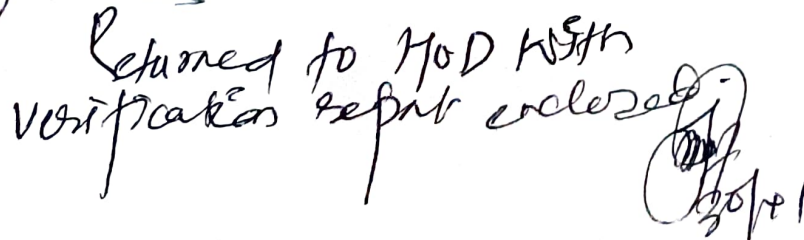 Returned to HoD with
verification report enclosed.